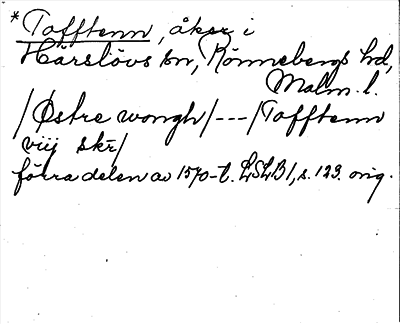 *Tofftenn, åker i
Härslövs sn, Rönnebergs hd,
Malm. l.
/Østre wongh/---/Tofftenn
viij skr/
förra delen av 1570-t. LSLB1, s. 123. orig.